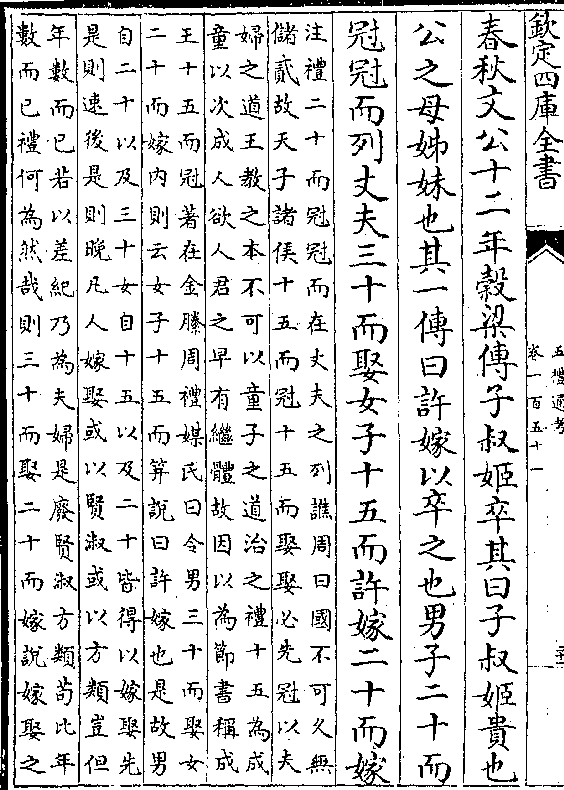 欽定四庫全書
五禮通考
卷一百五十一
春秋文公十二年穀梁傳子叔姬卒其曰子叔姬貴也
公之母姊妹也其一傳曰許嫁以卒之也男子二十而
冠冠而列丈夫三十而娶女子十五而許嫁二十而嫁
注禮二十而冠冠而在丈夫之列譙周曰國不可久無
儲貳故天子諸侯十五而冠十五而娶娶必先冠以夫
婦之道王教之本不可以童子之道治之禮十五為成
童以次成人欲人君之早有繼體故因以為節書稱成
王十五而冠著在金縢周禮媒氏曰令男三十而娶女
二十而嫁內則云女子十五而笄說曰許嫁也是故男
自二十以及三十女自十五以及二十皆得以嫁娶先
是則速後是則晚凡人嫁娶或以賢淑或以方類豈但
年數而已若以差紀乃為夫婦是廢賢淑方類苟比年
數而已禮何為然哉則三十而娶二十而嫁說嫁娶之